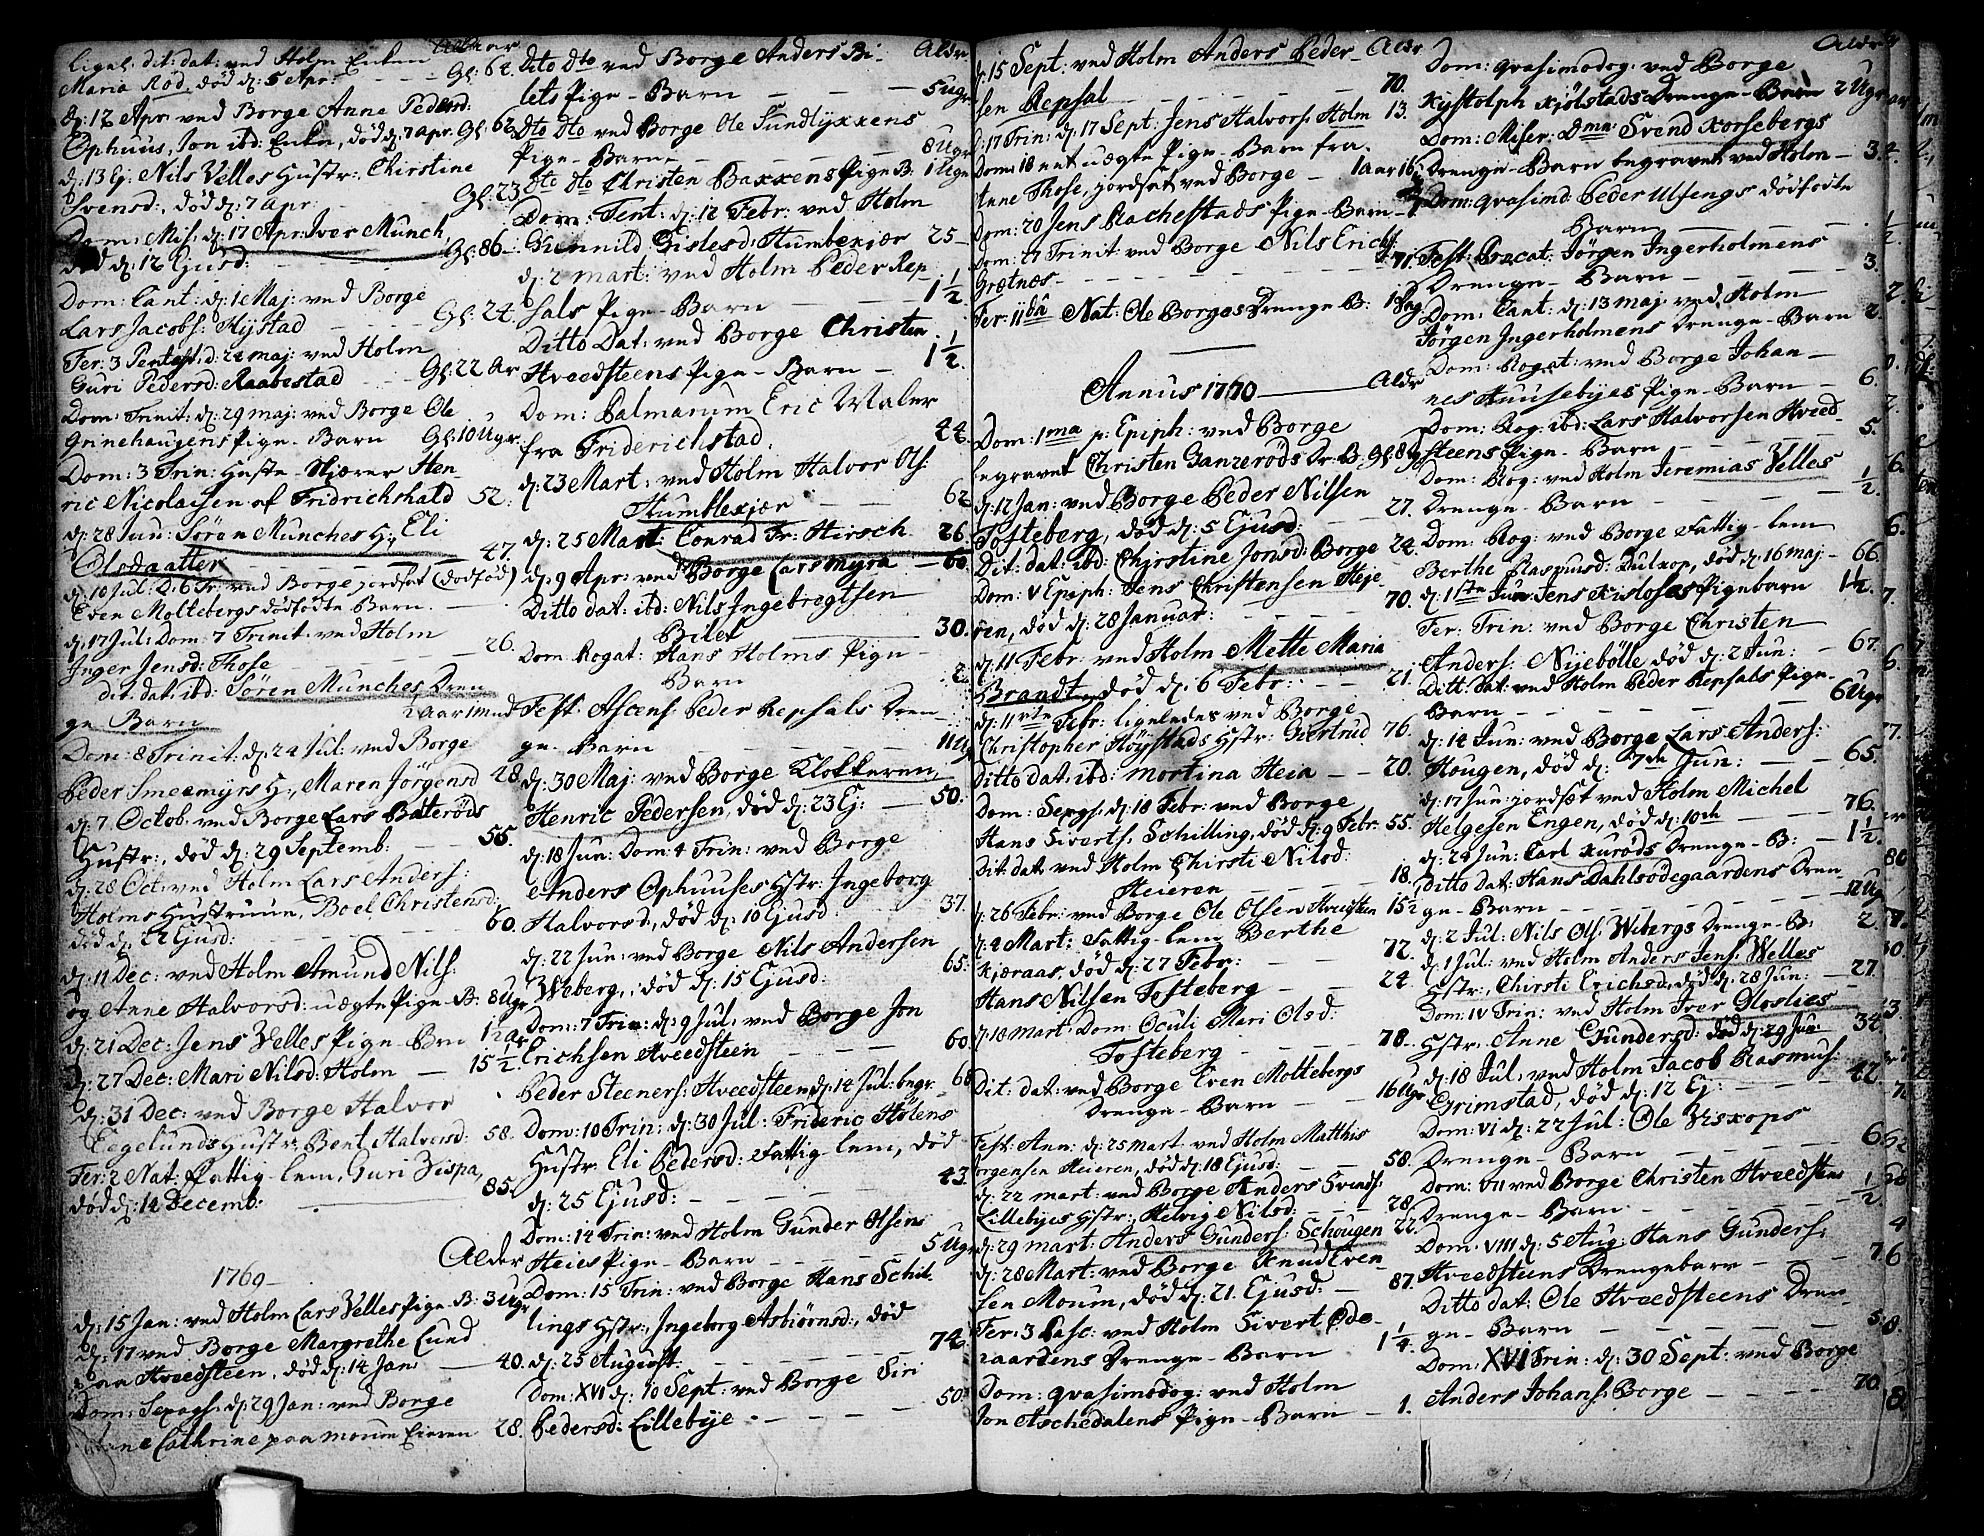 ligel. dit: dat: ved Holm Enken Aldrar
Maria Röd, död d: 5 Apr: Gl: 64.
d: 12 Apr: ved Borge Anne Pedersd:
Ophuus, Jon ibd: Enke, död d: 7 Apr. Gl: 62
d: 13 Ej: Nils Velles Hustr: Chirstine
Svensd:, död d: 7 Apr: Gl: 23
Dom: Mis: d: 17 Apr: Iver Munch
död d: 12 Ejusd: Gl: 86
Dom: Cant: d: 1 Maj: ved Borge
Lars Jacobs: Hystad Gl: 24.
Fer: 3 Pentest: d: 24 maj: ved Holm
Guri Pedersd: Raabestad Gl: 22 Ar
Dom: Trinit: d: 29 maj: ved Borge Ole
Grinehaugens Pige-Barn Gl: 10 Ugr
Dom: 3 Trin: Hen-
ric Nicolaisen af Fridrichshald 52.
d: 28 Jun: Sören Munches H:, Eli
Olsdaatter 47.
d: 10 Jul: D: 6 Tr: ved Borge jordsat (dodföd)
Even Moltebergs dödfödte Barn.
d: 17 Jul: Dom: 7 Trinit: ved Holm
Inger Jensd: Those 26.
dit: dat: ibd: Sören Munches Dren-
ge-Barn ½ Aar 1 mnd
Dom: 8 Trinit: d: 24 Jul: ved Borge
Peder Smeemyrs H:, Maren Jörgensd 28.
d: 7 Octob. ved Borge Lars Bateröds
Hustr:, död d: 29 Septemb: 56.
d: 28 Oct: ved Holm Lars Anders:
Holms Hustruue, Boel Christensd:
död d: 22 Ejusd: 60.
d: 11 Dec: ved Holm Amund Nils:
og Anne Halvorsd: uægte Pige-B: 8 Ugr
d: 21 Dec: Jens Velles Pige-Brn 1½ ar
d: 27 Dec: Mari Nilsd: Holm 15½
d: 31 Dec: ved Borge Halvor
Eegelunds Hustr: Bent Halvorsd: 58.
Fer: 2 Nat: Fattig-lem, Guri Vispa,
död d: 14 Decemb: 85.
1769 Alder
d: 15 Jan: ved Holm Lars Velles Pige-B: 3 Ugr
d: 17 ved Borge Margrethe Lund
paa Hveedsteen, död d: 14 Jan: 40.
Dom: Sexags: d: 29 Jan: ved Borge
Anne Cathrine paa moum Eieren 28.
Dto Dto ved Borge Anders Bi- Aldr
lets Pige-Barn 5 ugr
Dto Dto ved Borge Ole Sundlyxxens
Pige-Barn 8 Ugr
Dto Dto Christen Baxxens Pige B: 1 Uge
Dom: Tent: d: 12 Febr: ved Holm
Gunnild Gislesd: Humbekjær 25
d: 2 mart: ved Holm Peder Rep-
sals Pige-Barn 1½.
Ditto Dat: ved Borge Christen
Hveedsteens Pige-Barn 1½.
Dom: Palmarum Eric Maler
fra Friderichstad. 44.
d: 23 Mart: ved Holm Halvor Ols:
Humblekjær 62
d: 25 Mart: Conrad Fr: Hirsch. 26
d: 9 Apr: ved Borge Lars Myra 60.
Ditto dat: ibd: Nils Ingebregtsen
Bilet 30.
Dom Rogat: Hans Holms Pige-
Barn 2.
Fest: Ascens: Peder Repsals Dren-
ge-Barn 11 Ug
d: 30 Maj: ved Borge Klokkeren
Henric Pedersen, död d: 23 Ej: 50.
d: 18 Jun: Dom: 4 Trin: ved Borge
Anders Ophuuses Hstr: Ingeborg
Halvorsd:, död d: 10 Ejusd: 37.
d: 22 Jun: ved Borge Nils Andersen
Weberg, död d: 15 Ejusd: 65.
Dom: 7 Trin: d: 9 Jul: ved Borge Jon
Erichsen Hveedsteen 60
Peder Steeners: Hveedsteen d: 14 Jul: begr: 68
Dom: 10 Trin: d: 30 Jul: Frideric Hölens
Hustr: Eli Pedersd: Fattig-lem, död
d: 25 Ejusd: 43.
Dom: 14 Trin: ved Holm Gunder Olsens
Heies Pige-Barn 5 Ugr
Dom: 15 Trin: ved Borge Hans Schil-
lings Hstr:, Ingeborg Asbiörnsd:, död
d: 25 August. 74.
Dom: XVI d: 10 Sept: ved Borge Siri
Pedersd: Lillebye 50
d: 15 Sept: ved Holm Anders Peder- Aldr
sen Repsal 70.
D: 17 Trin: d: 17 Sept: Jens Halvors: Holm 13.
Dom: 18 net uægte Pige-Barn fra
Anne Those, jordsat ved Borge 1 Aar 16
Dom: 20 Jens Rachestads Pige-Barn 1
Dom: 27 Trinit: ved Borge Nils Erichs:
Grætnes 71.
Fer: 11da Nat: Ole Borges Drenge-B: 1 Dag.
Annus 1770 Aldr
Dom: 1ma p: Epiph: ved Borge
begravet Christen Ganzeröds Dr-B. Gl: 8 g
d: 12 Jan: ved Borge Peder Nilsen
Tosteberg, död d: 5 Ejusd: 27.
Dit: dat: ibd: Chirstine Jonsd: Borge 24.
Dom: V Epiph: Jens Christensen Heje-
ren, död d: 28 Januar: 70.
d: 11 Febr: ved Holm Mette Maria
Brandt, död d: 6 Febr: 21.
d: 11rte Febr: ligeledes ved Borge
Christopher Höystads Hstr: Giertrud 76.
Ditto dat: ibd: mortina Heia 20.
Dom: Sexgs: d: 18 Febr: ved Borge
Hans Siverts: Schilling, död d: 9 Febr: 55.
Dit: dat: ved Holm Chirsti Nilsd:
Heieren 18.
d: 26 Febr: ved Borge Ole Olsen Hveedsteen 15½
d: 4 Mart: Fattig-lem Berthe
Kjæraas, död d: 27 Febr: 72.
Hans Nilsen Tosteberg 24.
d: 18 mart: Dom: Oculi Mari Olsd:
Tosteberg 78.
Dit: dat: ved Borge Even Moltebergs
Drenge-Barn 16 Ugr
Fest: Ann: d: 25 mart: ved Holm Matthis
Jörgensen Heieren, död d: 18 Ejusd: 58.
d: 22 mart: ved Borge Anders Svends:
Lillebyes Hstr: Helvig Nilsd: 28.
d: 29 mart: Anders Gunders: Schougen 22.
d: 28 Mart: ved Borge Knud Even-
sen Moum, död d: 21. Ejusd: 87.
Fer: 3 Pasc: ved Holm Sivert Öde-
gaardens Drenge-Barn 1¼
Dom: qvasimodog: ved Holm
Jon Aschedalens Pige-Barn 1.
Dom: qvasimodog: ved Borge Aldr
Kystolph Kjölstads Drenge-Barn 2 Ugr
Dom: Miser: Dmn: Svend Korsebergs
Drenge-Barn begravet ved Holm 3.
Dom: qvasimd: Peder Ulsengs dödfödte
Barn ½.
Fest: Præcat: Jörgen Ingerholmens
Drenge-Barn 3.
Dom: Cant: d: 13 maj: ved Holm
Jörgen Ingerholmens Drenge-Barn 2.
Dom: Rogat: ved Borge Johan-
nes Huusebyes Pige-Barn 6.
Dom: Rog: ibd: Lars Halvorsen Hveed-
steens Pige-Barn 5.
Dom: Rog: ved Holm Jeremias Velles
Drenge-Barn ½.
Dom: Rog: ved Borge Fattig-lem
Berthe Rasmusd: Julxop, död d: 16 maj 66.
d: 1ste Jun: Jens Kisloses Pigebarn 1½.
Fer: Trin: ved Borge Christen
Anders: Nijebölle död d: 2 Jun: 67.
Ditt: dat: ved Holm Peder Repsals Pige-
Barn 6 Ugr
d: 14 Jun: ved Borge Lars Anders:
Hougen, död d: 7de Jun: 65.
d: 17 Jun: jordsæt ved Holm Michel
Helgesen Engen, död d: 10de 76.
d: 24 Jun: Carl Kuröds Drenge-B: 1½.
Ditto dat: Hans Dahlsödegaardens Dren-
ge-Barn 12 Ug
d: 2 Jul: Nils Ols: Wibergs Drenge-B: 2
d: 1 Jul: ved Holm Anders Jens: Welles
Hstr:, Chirsti Erichsd, död d: 28 Jun: 27.
Dom: IV Trin: ved Holm Iver Oloslies
Hstr: Anne Gundersd: död d: 29 Jun: 34.
d: 18 Jul: ved Holm Jacob Rasmus:
Grimstad, död d: 12 Ej: 42.
Dom: VI d: 22 Jul: Ole Visxops
Drenge-Barn 6
Dom: VII ved Borge Christen Hveedsteens
Drenge-Barn ½.
Dom: VIII d: 5 Aug: Hans Gunders:
Hveedsteens Drengebarn 7.
Ditto dat: Ole Hveedsteens Dren-
ge-Barn 5.
Dom: XVI Trin: d: 30 Sept: ved Borge
Anders Johans: Borge 70